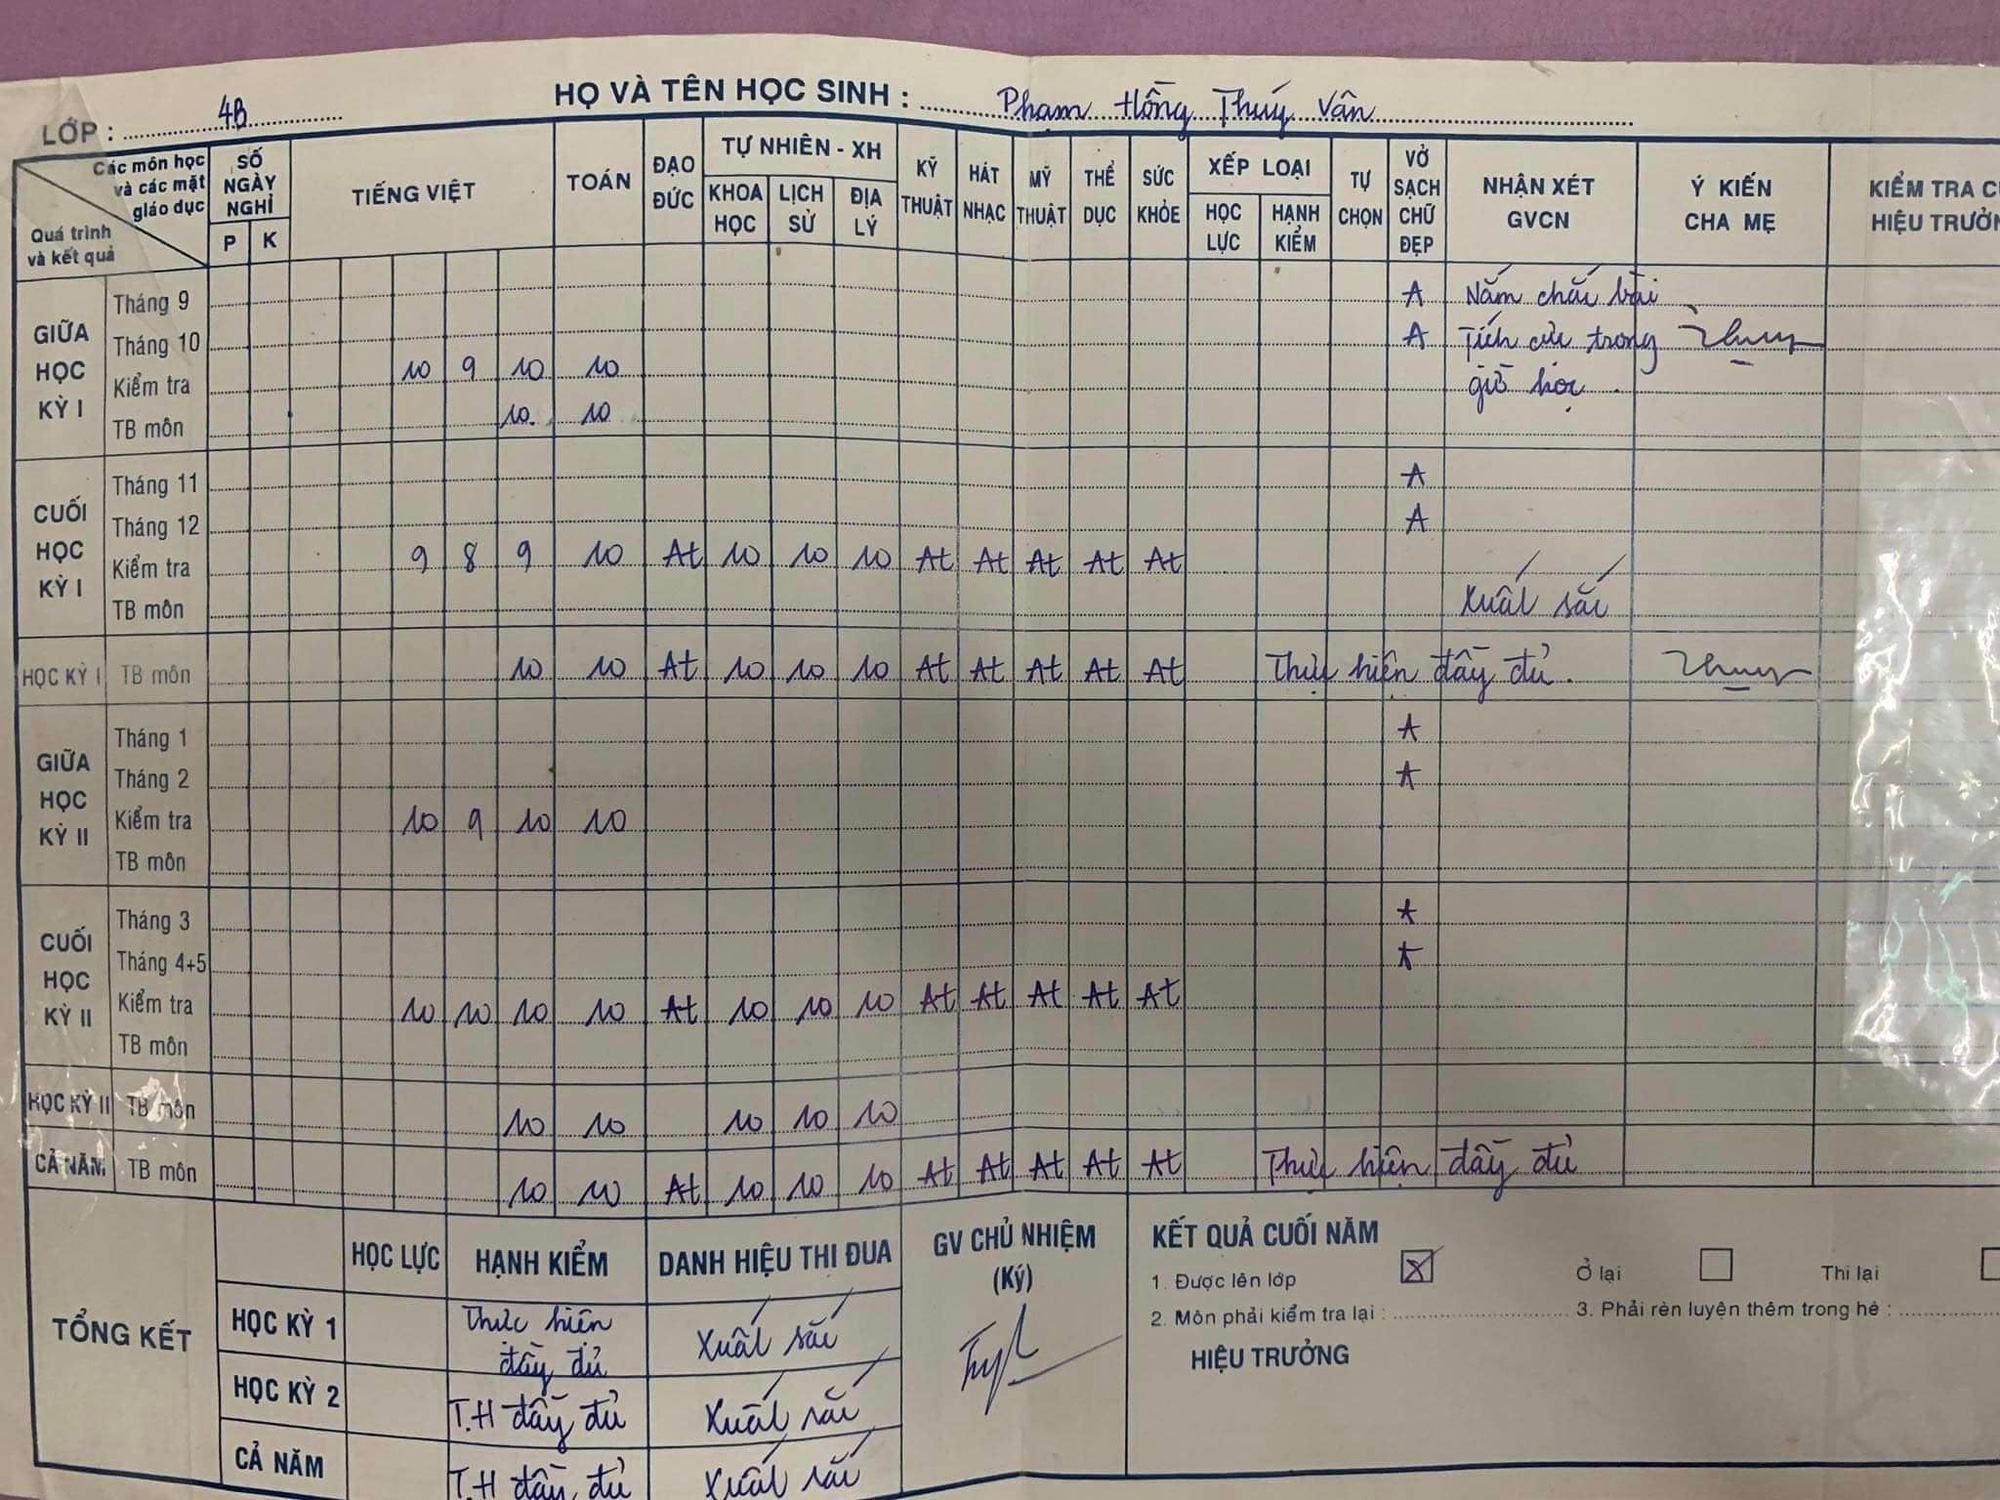 LỚP : 4B HỌ VÀ TÊN HỌC SINH : Phạm Hồng Thúy Vân
Các môn học và các mặt giáo dục
Quá trình và kết quả
SỐ NGÀY NGHỈ
P K
TIẾNG VIỆT
TOÁN
ĐẠO ĐỨC
TỰ NHIÊN - XH
KHOA HỌC
LỊCH SỬ
ĐỊA LÝ
KỸ THUẬT
HÁT NHẠC
MỸ THUẬT
THỂ DỤC
SỨC KHỎE
XẾP LOẠI
HỌC LỰC
HẠNH KIỂM
TỰ CHỌN
VỞ SẠCH CHỮ ĐẸP
NHẬN XÉT GVCN
Ý KIẾN CHA MẸ
KIỂM TRA
HIỆU TRƯỞN
GIỮA HỌC KỲ I
Tháng 9 A Nắm chắc bài
Tháng 10 A Tích cực trong
Kiểm tra 10 9 10 10 giờ học
TB môn 10 10
CUỐI HỌC KỲ I
Tháng 11 A
Tháng 12 A
Kiểm tra 9 8 9 10 At 10 10 10 At At At At At
TB môn Xuất sắc
HỌC KỲ I TB môn 10 10 At 10 10 10 At At At At At Thực hiện đầy đủ.
GIỮA HỌC KỲ II
Tháng 1 A
Tháng 2 A
Kiểm tra 10 9 10 10
TB môn
CUỐI HỌC KỲ II
Tháng 3 A
Tháng 4+5 A
Kiểm tra 10 10 10 10 At 10 10 10 At At At At At
TB môn
HỌC KỲ II TB môn 10 10 10 10 10
CẢ NĂM TB môn 10 10 At 10 10 10 At At At At At Thực hiện đầy đủ
TỔNG KẾT
HỌC LỰC HẠNH KIỂM DANH HIỆU THI ĐUA
HỌC KỲ 1 Thực hiện đầy đủ Xuất sắc
HỌC KỲ 2 T.H đầy đủ Xuất sắc
CẢ NĂM T.H đầy đủ Xuất sắc
GV CHỦ NHIỆM
(Ký)
KẾT QUẢ CUỐI NĂM
1. Được lên lớp X Ở lại Thi lại
2. Môn phải kiểm tra lại : 3. Phải rèn luyện thêm trong hè :
HIỆU TRƯỞNG